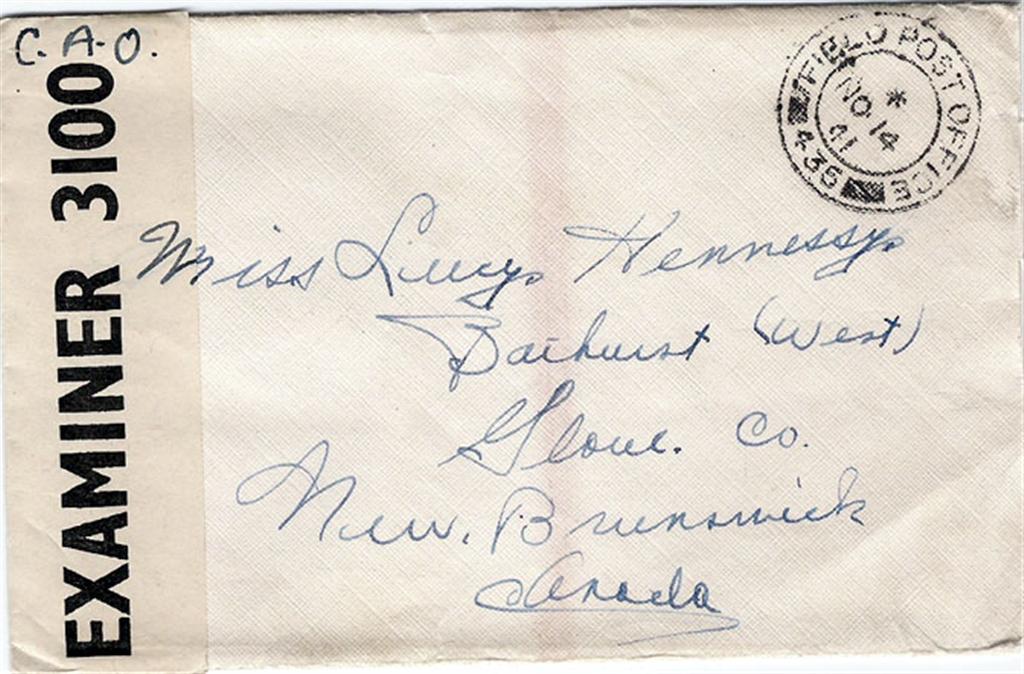 C.A.O.
EXAMINER 3100
FIELD POST OFFICE
*
NO 14
41
436
Miss Lucy Hennessy
Bathurst (West)
Glouc. Co.
New. Brunswick
Canada